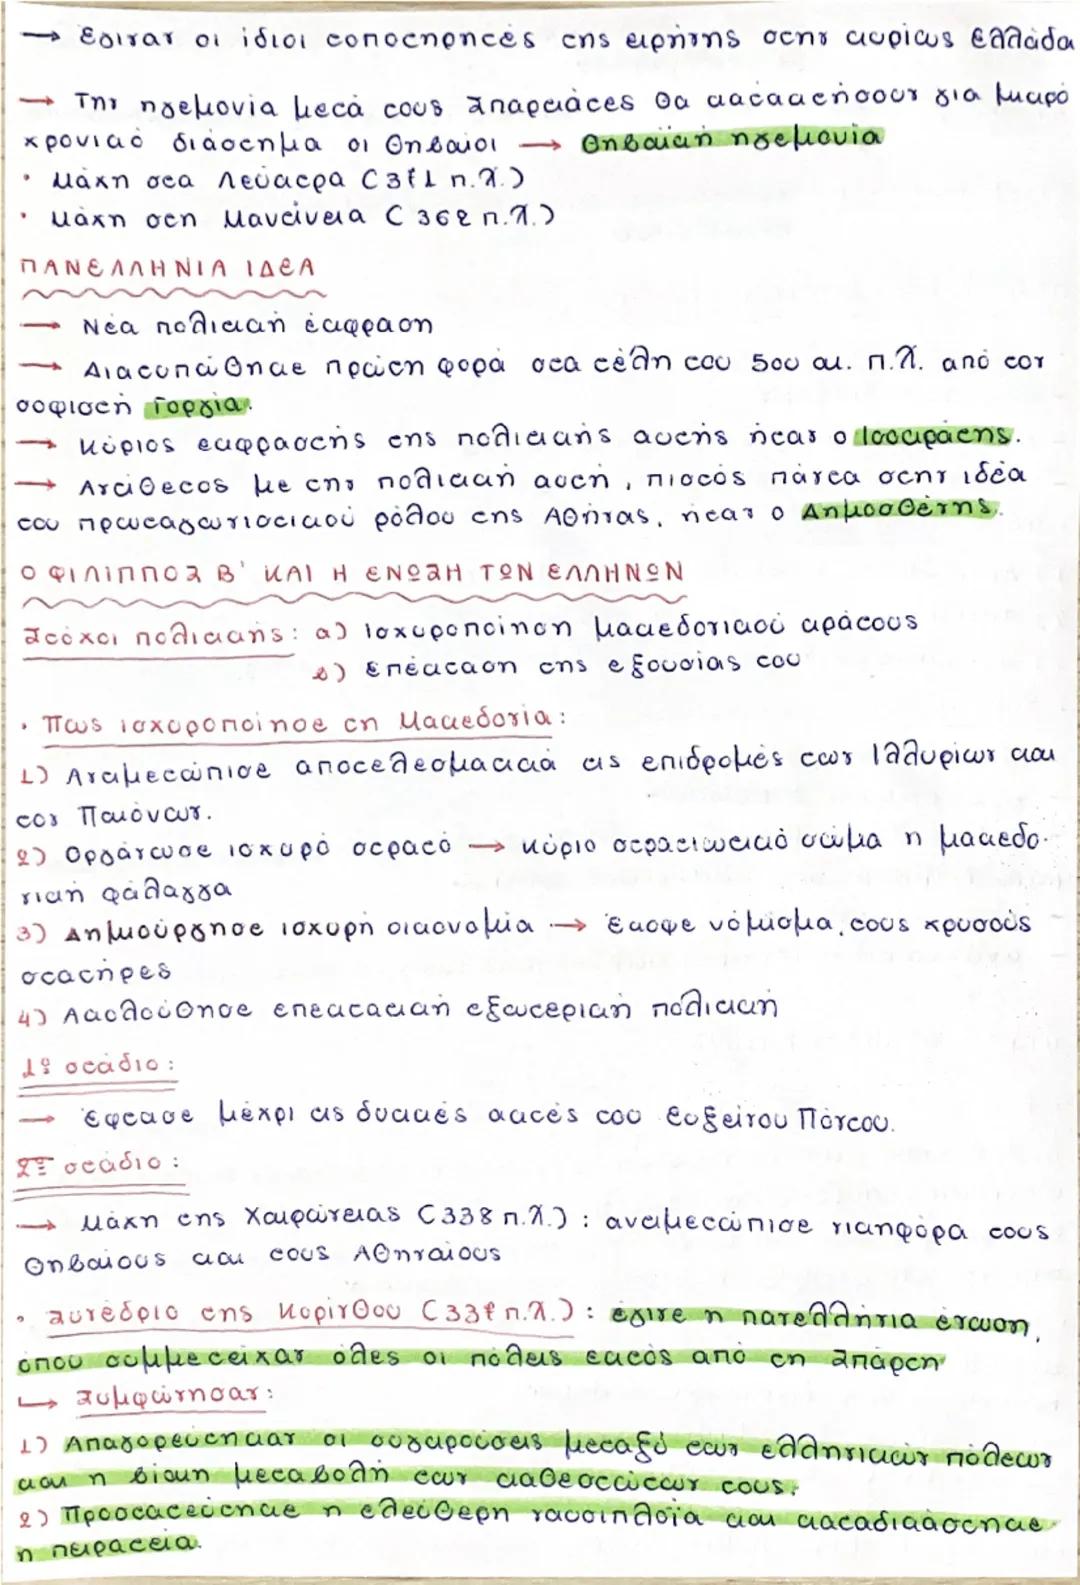 → Έδιναν οι ίδιοι τοποτηρητές της ειρήνης στην κυρίως Ελλάδα
→ Την ηγεμονία μετά τους Σπαρτιάτες θα κατακτήσουν για μικρό
χρονικό διάστημα οι Θηβαίοι → Θηβαϊκή ηγεμονία
· Μάχη στα Λεύκτρα (371 π.Χ.)
· Μάχη στη Μαντίνεια (362 π.Χ.)
ΠΑΝΕΛΛΗΝΙΑ ΙΔΕΑ
→ Νέα πολιτική έκφραση
→ Διατυπώθηκε πρώτη φορά στα τέλη του 5ου αι. π.Χ. από τον
σοφιστή Γοργία.
→ Κύριος εκφραστής της πολιτικής αυτής ήταν ο Ισοκράτης.
→ Αντίθετος με την πολιτική αυτή, πιστός πάντα στην ιδέα
του πρωταγωνιστικού ρόλου της Αθήνας, ήταν ο Δημοσθένης.
Ο ΦΙΛΙΠΠΟΣ Β' ΚΑΙ Η ΕΝΩΣΗ ΤΩΝ ΕΛΛΗΝΩΝ
Στόχοι πολιτικής: α) Ισχυροποίηση μακεδονικού κράτους
β) Επέκταση της εξουσίας του
· Πως ισχυροποίησε τη Μακεδονία:
1) Αναμετώπισε αποτελεσματικά τις επιδρομές των Ιλλυρίων και
τον Παιόνων.
2) Οργάνωσε ισχυρό στρατό → κύριο στρατιωτικό σώμα η μακεδο-
νική φάλαγγα
3) Δημιούργησε ισχυρή οικονομία → Έκοψε νόμισμα, τους χρυσούς
στατήρες
4) Ακολούθησε επεκτατική εξωτερική πολιτική
1ο στάδιο:
→ Έφτασε μέχρι τις δυτικές ακτές του Ευξείνου Πόντου.
2ο στάδιο:
→ Μάχη της Χαιρώνειας (338 π.Χ.): αντιμετώπισε νικηφόρα τους
Θηβαίους και τους Αθηναίους
· Συνέδριο της Κορίνθου (337 π.Χ.): έγινε η πανελλήνια ένωση,
όπου συμμετείχαν όλες οι πόλεις εκτός από τη Σπάρτη
↳ Συμφώνησαν:
1) Απαγορεύτηκαν οι συγκρούσεις μεταξύ των ελληνικών πόλεων
και η βίαιη μεταβολή των καθεστώτων τους.
2) Προστατεύτηκε η ελεύθερη ναυσιπλοΐα και καταδικάστηκε
η πειρατεία.